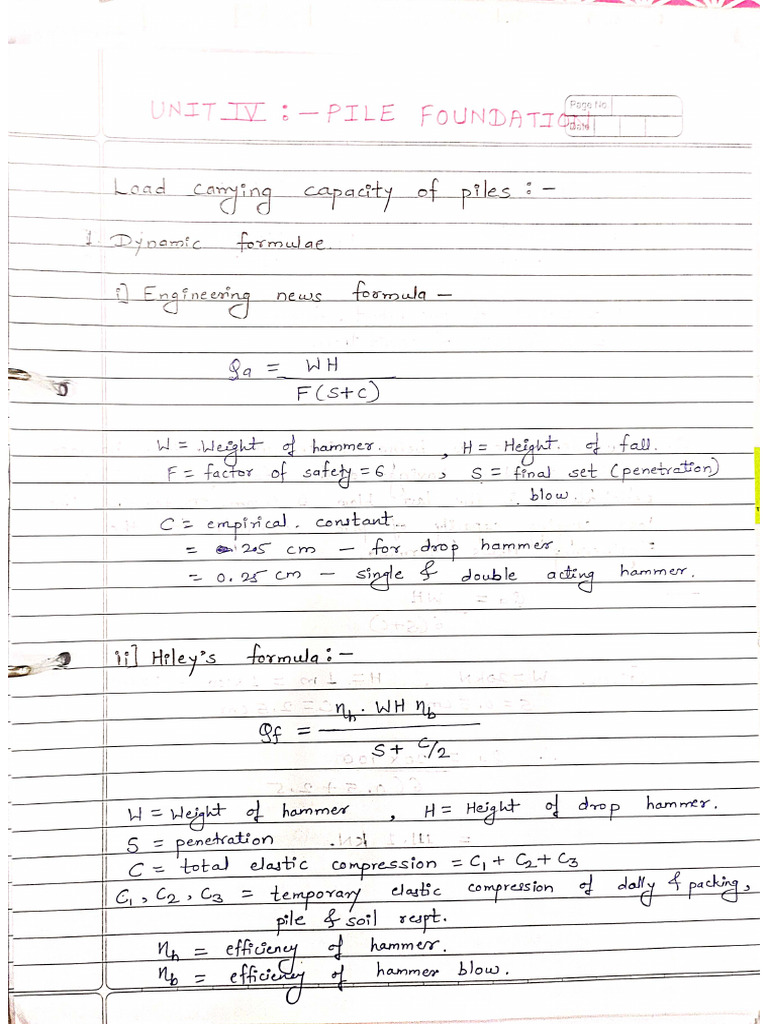 UNIT IV :- PILE FOUNDATION
Page No
Date
Load carrying capacity of piles :-
1. Dynamic formulae.
i] Engineering news formula -
Qa = WH
F(S+C)
W = Weight of hammer. , H = Height of fall.
F = factor of safety = 6 , S = final set (penetration)
blow.
C = empirical constant.
= 2.5 cm - for drop hammer.
= 0.25 cm - single & double acting hammer.
ii] Hiley's formula :-
Qf = ηh . WH ηb
S + C/2
W = Weight of hammer , H = Height of drop hammer.
S = penetration
C = total elastic compression = C1 + C2 + C3
C1, C2, C3 = temporary elastic compression of dally & packing,
pile & soil respt.
ηh = efficiency of hammer.
ηb = efficiency of hammer blow.